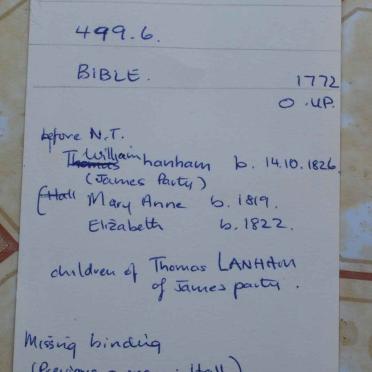 499.6.
BIBLE. 1772
O.UP.
before N.T.
Thomas William hanham b. 14.10.1826.
(James Party)
(Hall Mary Anne b. 1819.
Elizabeth b. 1822.
children of Thomas LANHAM
of James party.
Missing binding
(Previous Hall)